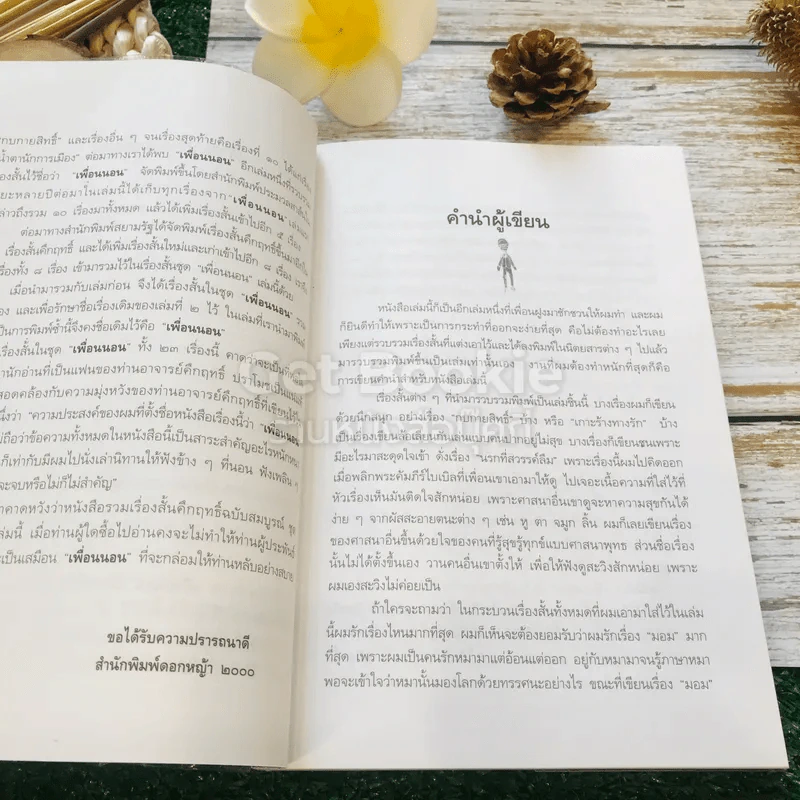 "กบกายสิทธิ์" และเรื่องอื่น ๆ จนเรื่องสุดท้ายคือเรื่องที่ ๑๐ ได้แก่เรื่อง
น้ำตานักการเมือง" ต่อมาทางเราได้พบ "เพื่อนนอน" อีกเล่มหนึ่งที่รวบรวม
องสั้นไว้ชื่อว่า "เพื่อนนอน" จัดพิมพ์ขึ้นโดยสำนักพิมพ์ประมวล
ยะหลายปีต่อมาในเล่มนี้ได้เก็บทุกเรื่องจาก "เพื่อนนอน" เล่ม
ล่าวถึงรวม ๑๐ เรื่องมาทั้งหมด แล้วได้เพิ่มเรื่องสั้นเข้าไปอีก ๕ เรื่อง
ต่อมาทางสำนักพิมพ์สยามรัฐได้จัดพิมพ์เรื่องสั้นคึกฤทธิ์ขึ้นมาอีก
เรื่องสั้นคึกฤทธิ์ และได้เพิ่มเรื่องสั้นใหม่และเก่าเข้าไปอีก ๘ เรื่อง
รื่องทั้ง ๘ เรื่อง เข้ามารวมไว้ในเรื่องสั้นชุด "เพื่อนนอน" เล่มนี้ด้วย
เมื่อนำมารวมกับเล่มก่อน จึงได้เรื่องสั้นในชุด "เพื่อนนอน" รวม
อง และเพื่อรักษาชื่อเรื่องเดิมของเล่มที่ ๒ ไว้ ในเล่มที่เรานำมาพิมพ์
เป็นการพิมพ์ซ้ำนี้จึงคงชื่อเดิมไว้คือ "เพื่อนนอน"
รื่องสั้นในชุด "เพื่อนนอน" ทั้ง ๒๓ เรื่องนี้ คาดว่าจะเป็นที่
นักอ่านที่เป็นแฟนของท่านอาจารย์คึกฤทธิ์ ปราโมชเป็นแน่แท้
สอดคล้องกับความมุ่งหวังของท่านอาจารย์คึกฤทธิ์ที่เขียนไว้ใน
นึ่งว่า "ความประสงค์ของผมที่ตั้งชื่อหนังสือเรื่องนี้ว่า "เพื่อนนอน"
ถือว่าข้อความทั้งหมดในหนังสือนี้เป็นสาระสำคัญอะไรหนักหนา
ก็เท่ากับมีผมไปนั่งเล่านิทานให้ฟังข้าง ๆ ที่นอน ฟังเพลิน ๆ
จะจบหรือไม่ก็ไม่สำคัญ"
าคาดหวังว่าหนังสือรวมเรื่องสั้นคึกฤทธิ์ฉบับสมบูรณ์ ชุด
ล่มนี้ เมื่อท่านผู้ใดซื้อไปอ่านคงจะไม่ทำให้ท่านผู้ประพันธ์
ะเป็นเสมือน "เพื่อนนอน" ที่จะกล่อมให้ท่านหลับอย่างสบาย
ขอได้รับความปรารถนาดี
สำนักพิมพ์ดอกหญ้า ๒๐๐๐
คำนำผู้เขียน
หนังสือเล่มนี้ก็เป็นอีกเล่มหนึ่งที่เพื่อนฝูงมาชักชวนให้ผมทำ และผม
ก็ยินดีทำให้เพราะเป็นการกระทำที่ออกจะง่ายที่สุด คือไม่ต้องทำอะไรเลย
เพียงแต่รวบรวมเรื่องสั้นที่แต่งเอาไว้และได้ลงพิมพ์ในนิตยสารต่าง ๆ ไปแล้ว
มารวบรวมพิมพ์ขึ้นเป็นเล่มเท่านั้นเอง งานที่ผมต้องทำหนักที่สุดก็คือ
การเขียนคำนำสำหรับหนังสือเล่มนี้
เรื่องสั้นต่าง ๆ ที่นำมารวบรวมพิมพ์เป็นเล่มขึ้นนี้ บางเรื่องผมก็เขียน
ด้วยนึกสนุก อย่างเรื่อง "กบกายสิทธิ์" หรือ "เกาะร้างทางรัก" บ้าง
เป็นเรื่องเขียนล้อเลียนกันเล่นแบบคนปากอยู่ไม่สุข บางเรื่องก็เขียนขึ้นเพราะ
มีอะไรมาสะดุดใจเข้า ดังเรื่อง "นรกที่สวรรค์ลืม" เพราะเรื่องนี้ผมไปคิดออก
เมื่อพลิกพระคัมภีร์ไบเบิลที่เพื่อนเขาเอามาให้ดู ไปเจอะเนื้อความที่ใส่ไว้ที่
หัวเรื่องเห็นมันติดใจสักหน่อย เพราะศาสนาอื่นเขาดูจะหาความสุขกันได้
ง่าย ๆ จากผัสสะอายตนะต่าง ๆ เช่น หู ตา จมูก ลิ้น ผมก็เลยเขียนเรื่อง
ของศาสนาอื่นขึ้นด้วยใจของคนที่รู้สุขรู้ทุกข์แบบศาสนาพุทธ ส่วนชื่อเรื่อง
นั้นไม่ได้ตั้งขึ้นเอง วานคนอื่นเขาตั้งให้ เพื่อให้ฟังดูสะวิงสักหน่อย เพราะ
ผมเองสะวิงไม่ค่อยเป็น
ถ้าใครจะถามว่า ในกระบวนเรื่องสั้นทั้งหมดที่ผมเอามาใส่ไว้ในเล่ม
นี้ผมรักเรื่องไหนมากที่สุด ผมก็เห็นจะต้องยอมรับว่าผมรักเรื่อง "มอม" มาก
ที่สุด เพราะผมเป็นคนรักหมามาแต่อ้อนแต่ออก อยู่กับหมามาจนรู้ภาษาหมา
พอจะเข้าใจว่าหมานั้นมองโลกด้วยทรรศนะอย่างไร ขณะที่เขียนเรื่อง "มอม"
Get Bookie